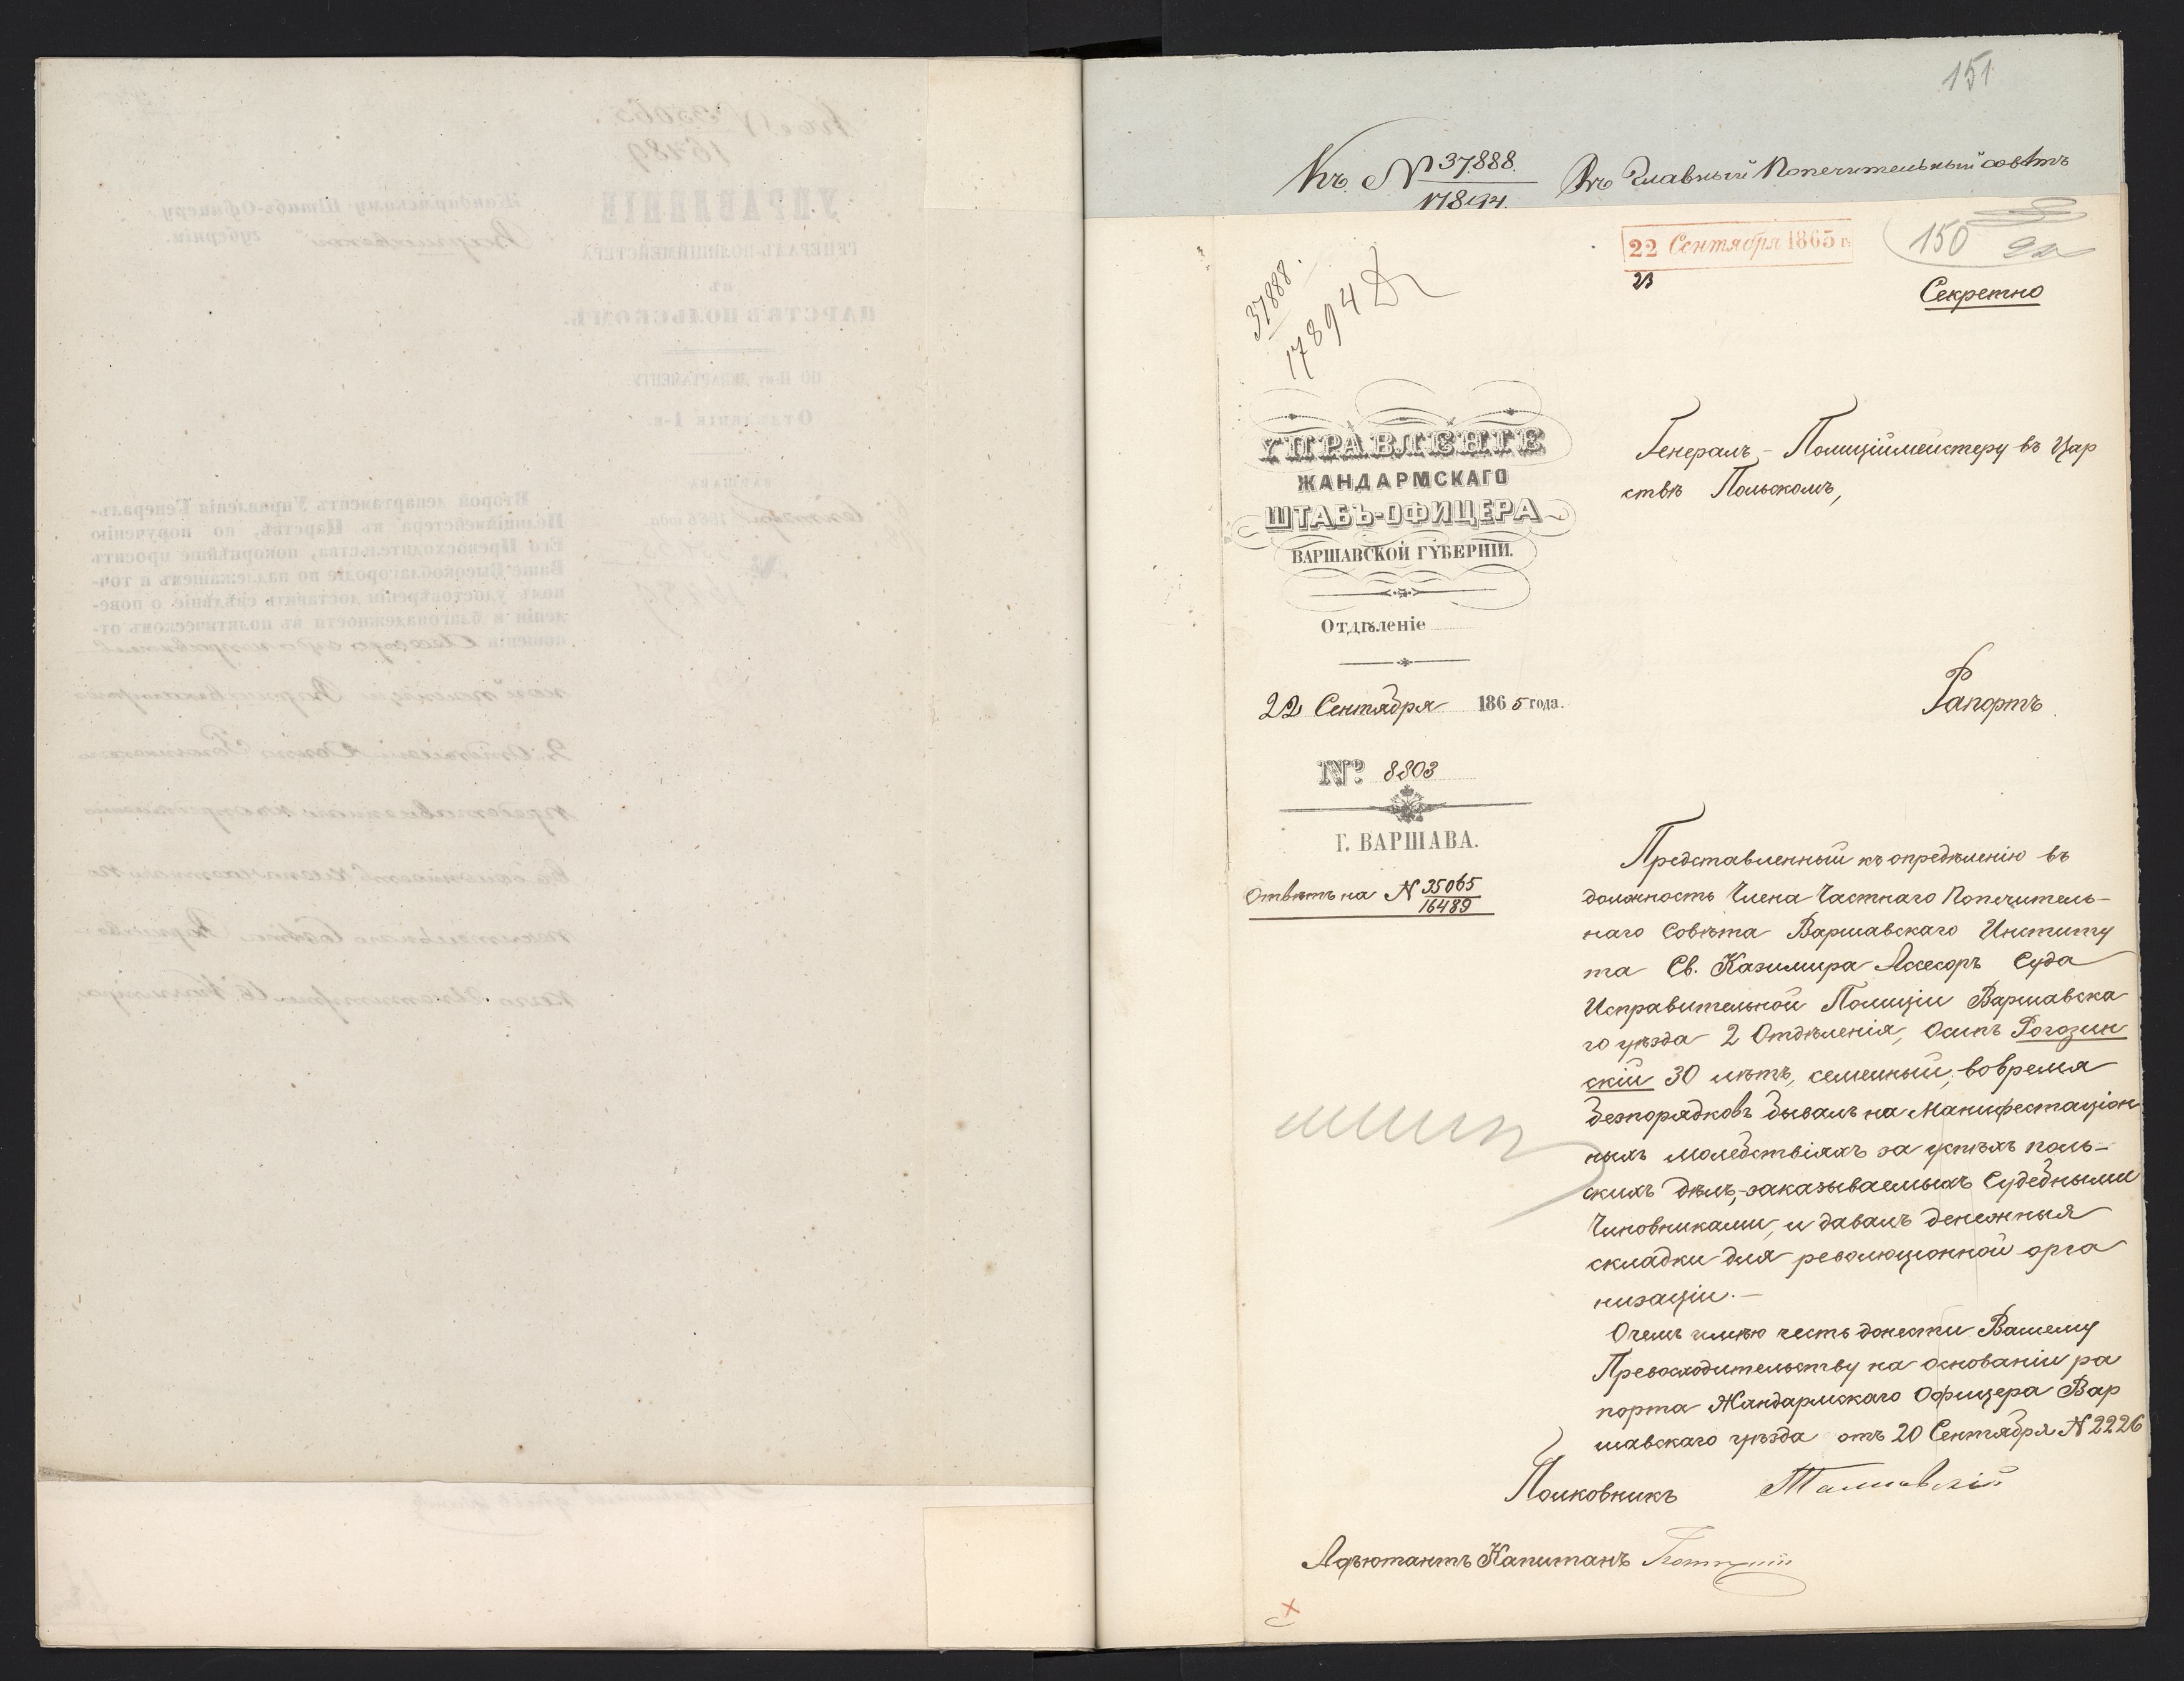 151
Къ № 37.888. Въ Главный Попечительный совѣтъ
17894.
22 Сентября 1865 г.
23
150
Секретно
37888
17894
УПРАВЛЕНІЕ
ЖАНДАРМСКАГО
ШТАБЪ-ОФИЦЕРА
ВАРШАВСКОЙ ГУБЕРНІИ.
Отдѣленіе
22 Сентября 1865 года.
№ 8803
Г. ВАРШАВА.
Отвѣтъ на № 35065
16489
Генералъ-Полиціймейстеру въ Цар
ствѣ Польскомъ,
Рапортъ
Представленный къ опредѣленію въ
должность Члена Частнаго Попечитель-
наго Совѣта Варшавскаго Институ
та Св. Казимира Ассесоръ Суда
Исправительной Полиціи Варшавска
го уѣзда 2 Отдѣленія, Осипъ Рогозин
скій 30 лѣтъ, семейный, вовремя
безпорядковъ бывалъ на Манифестаціон
ныхъ молебствіяхъ за успѣхъ поль-
скихъ дѣлъ, заказываемыхъ Судебными
Чиновниками, и давалъ денежныя
складки для революціонной орга
низаціи.—
Очемъ имѣю честь донести Вашему
Превосходительству на основаніи ра
порта Жандармскаго Офицера Вар
шавскаго уѣзда отъ 20 Сентября № 2226
Полковникъ
Адъютантъ Капитанъ